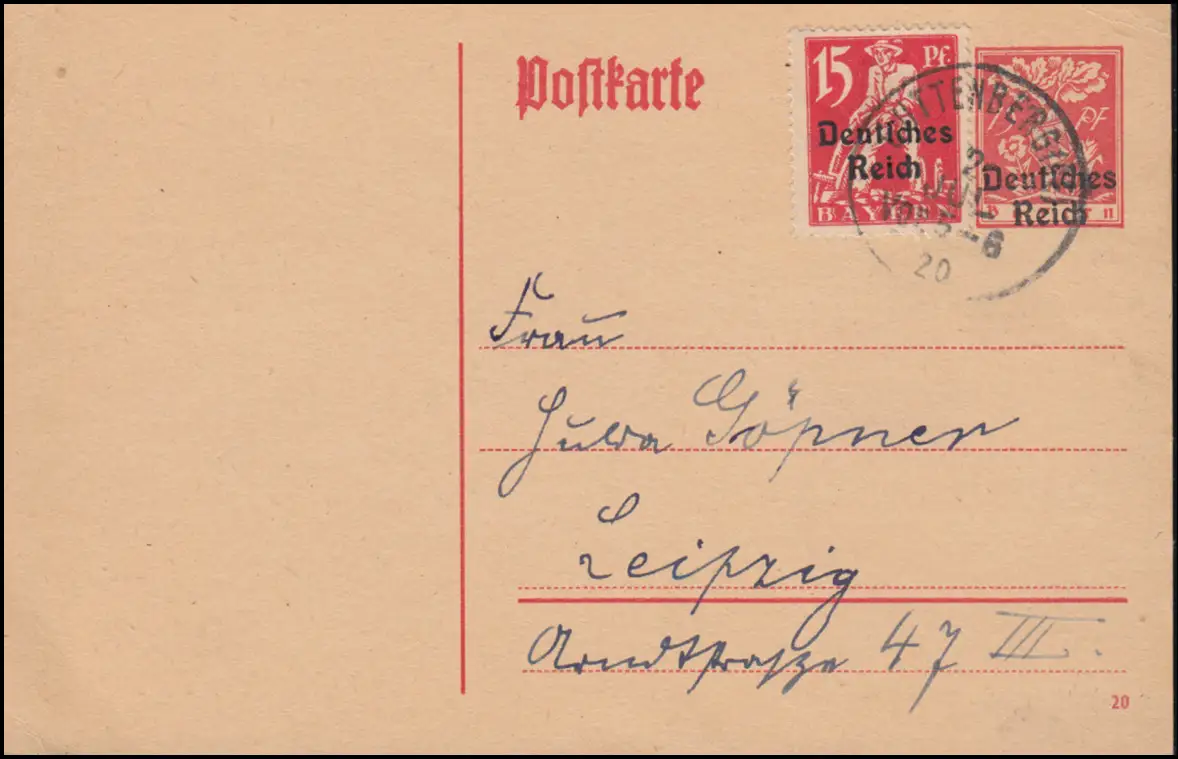 Postkarte
15 Pf.
Deutsches
Reich
BAYERN
15 Pf
Deutsches
Reich
JUL
5-6
20
Frau
Göpner
Leipzig
Arndtstraße 47 III.
20